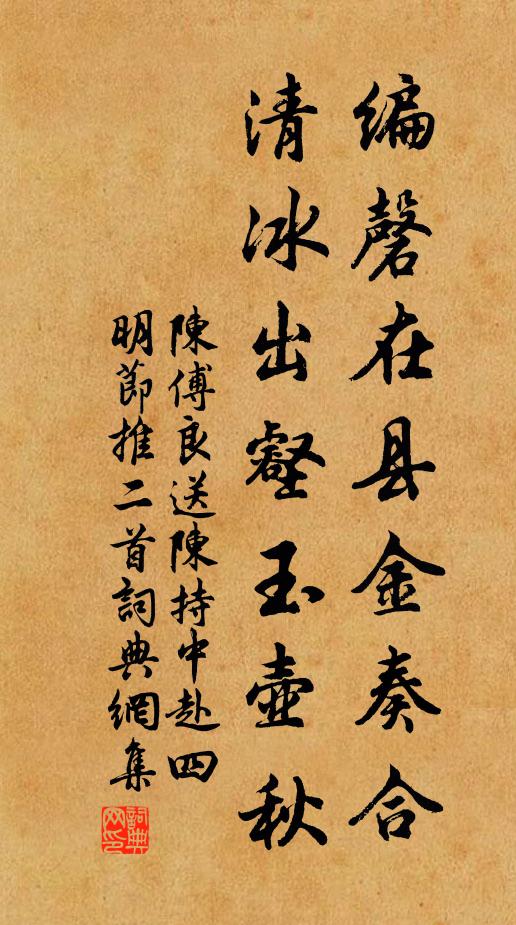 编磬在县金奏合
清冰出壑玉壶秋
陳傅良送陳持中赴四
明節推二首詞典網集
詞典
网印